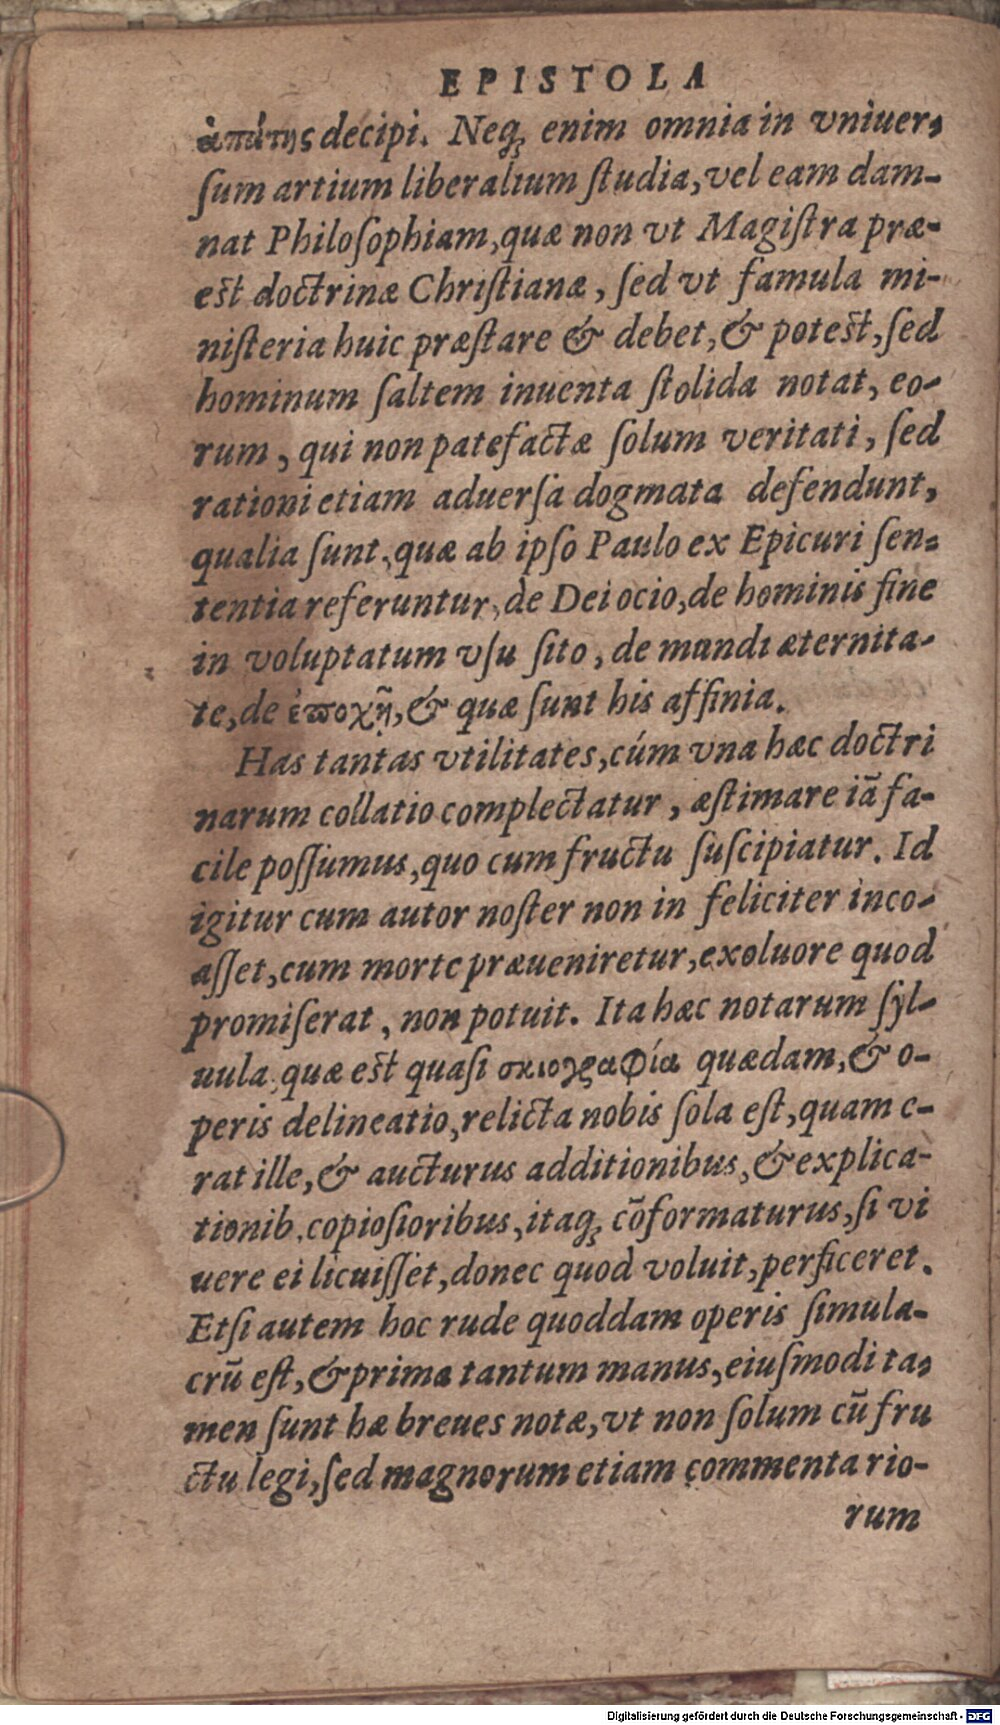 EPISTOLA
ἀπάτης decipi. Neq́; enim omnia in vniuer-
ſum artium liberalium ſtudia, vel eam dam-
nat Philoſophiam, quæ non vt Magiſtra præ-
eſt doctrinæ Chriſtianæ, ſed vt famula mi-
niſteria huic præſtare & debet, & poteſt, ſed
hominum ſaltem inuenta ſtolida notat, eo-
rum, qui non patefactæ ſolum veritati, ſed
rationi etiam aduerſa dogmata defendunt,
qualia ſunt, quæ ab ipſo Paulo ex Epicuri ſen-
tentia referuntur, de Dei ocio, de hominis fine
in voluptatum vſu ſito, de mundi æternita-
te, de ἐποχῇ, & quæ ſunt his affinia.
Has tantas vtilitates, cúm vna hæc doctri
narum collatio complectatur, æſtimare iā fa-
cile poſſumus, quo cum fructu ſuſcipiatur. Id
igitur cum autor noſter non in feliciter inco-
aſſet, cum morte præueniretur, exoluore quod
promiſerat, non potuit. Ita hæc notarum ſyl-
uula quæ eſt quaſi σκιογραφία quædam, & o-
peris delineatio, relicta nobis ſola eſt, quam e-
rat ille, & aucturus additionibus, & explica-
tionib. copioſioribus, itaq; cōformaturus, ſi vi
uere ei licuiſſet, donec quod voluit, perficeret.
Etſi autem hoc rude quoddam operis ſimula-
crū eſt, & prima tantum manus, eiuſmodi ta-
men ſunt hæ breues notæ, vt non ſolum cū fru
ctu legi, ſed magnorum etiam commentario-
rum
Digitalisierung gefördert durch die Deutsche Forschungsgemeinschaft - DFG